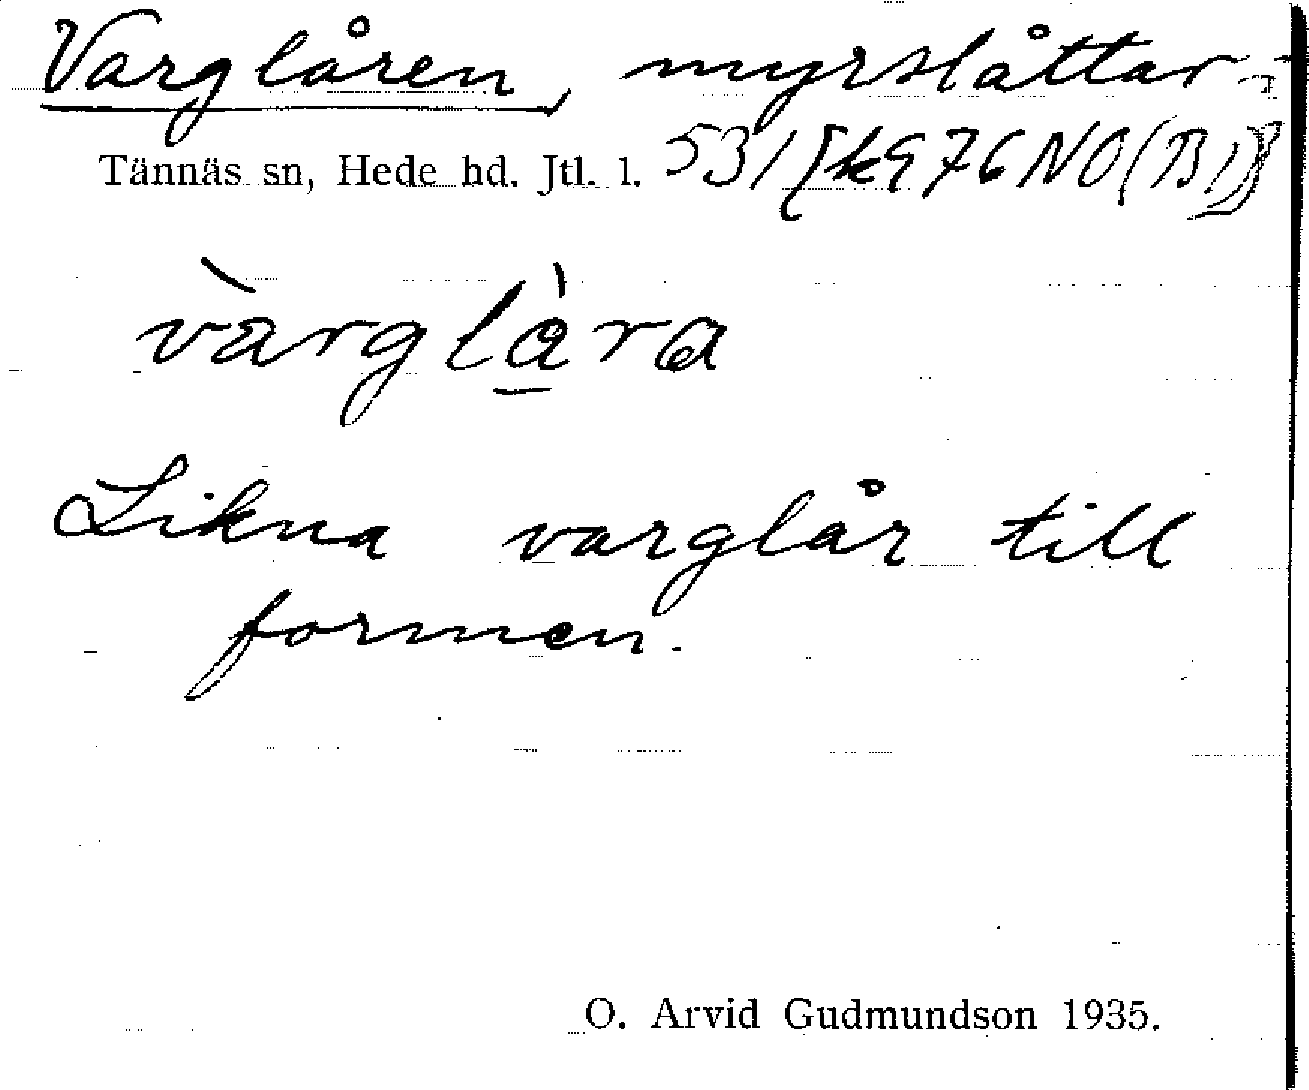 Varglåren, myrslåttar
Tännäs sn, Hede hd. Jtl. l. 531 [k976NO(B1)]
vàrglàra
Likna varglår till
formen.
O. Arvid Gudmundson 1935.